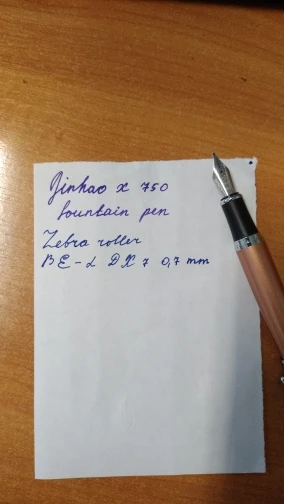 Jinhao x 750
fountain pen
Zebra roller
BE-α DX 7 0,7 mm